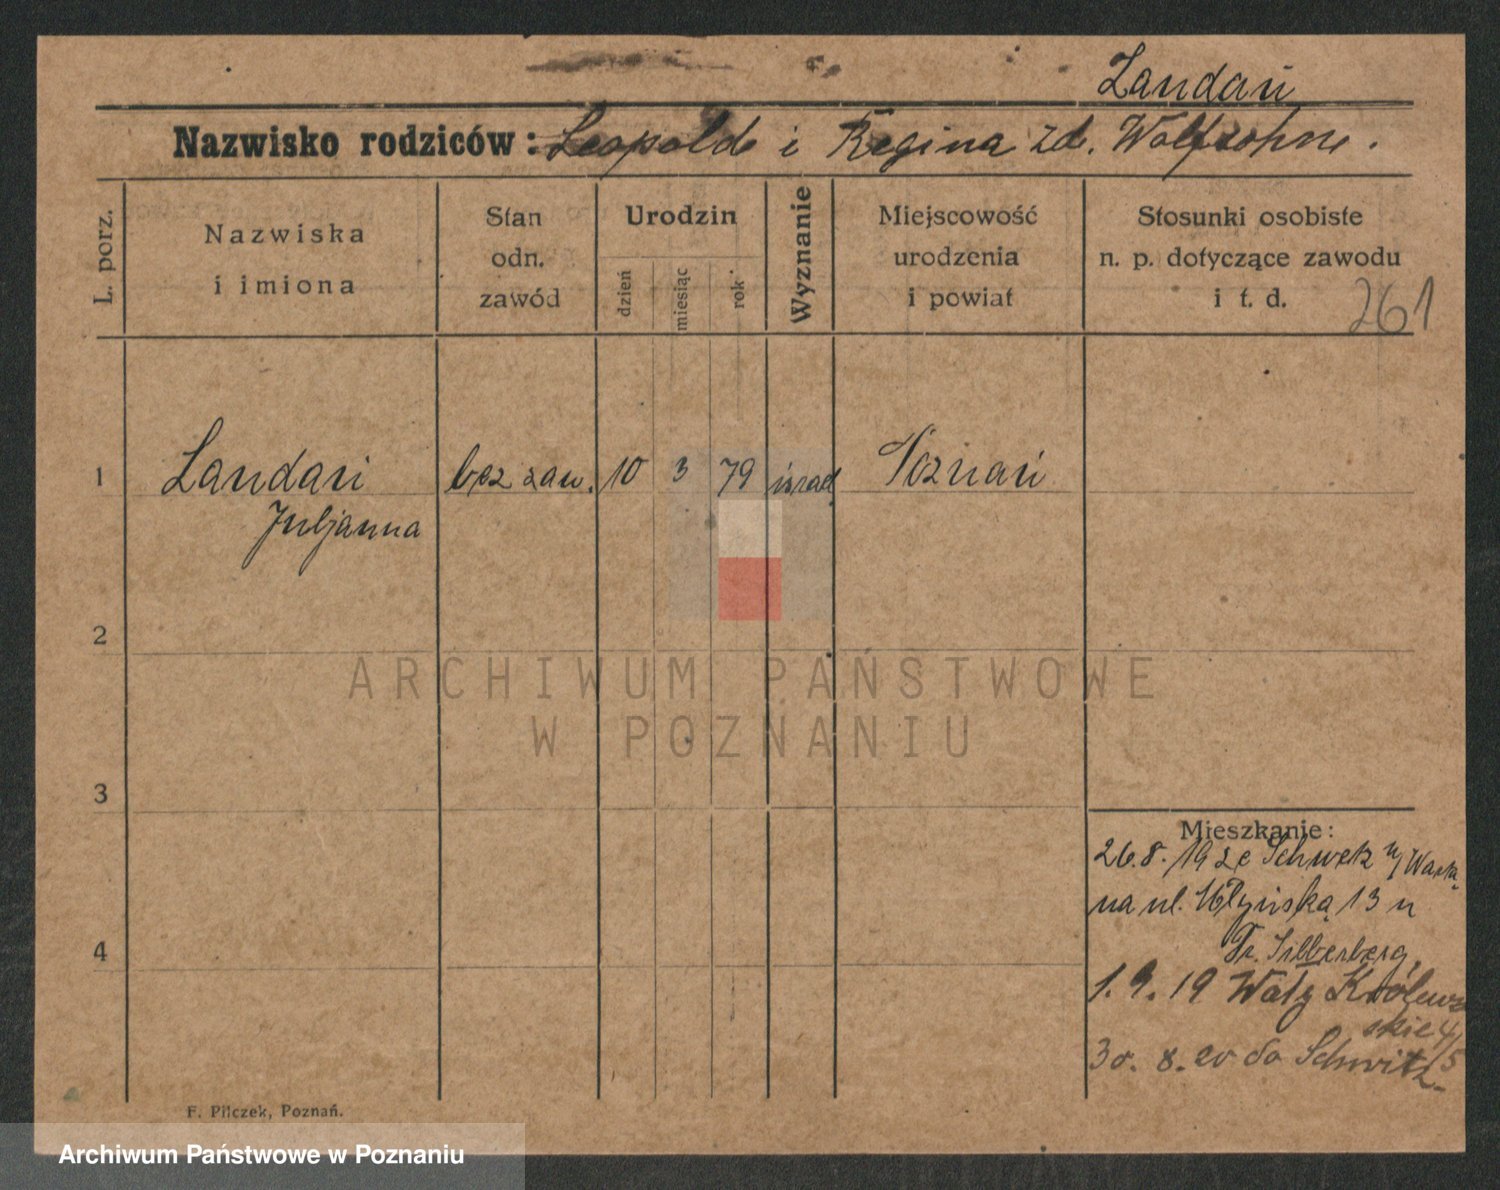 Landau
Nazwisko rodziców: Leopold i Regina zd. Wolfsohn.
L. porz.
Nazwiska
i imiona
Stan
odn.
zawód
Urodzin
dzień
miesiąc
rok
Wyznanie
Miejscowość
urodzenia
i powiat
Stosunki osobiste
n. p. dotyczące zawodu
i t. d.
261
1
Landau
Juljanna
bez zaw.
10
3
79
izrael
Poznań
2
ARCHIWUM PAŃSTWOWE
W POZNANIU
3
4
Mieszkanie:
26.8.19 ze n/Wartą
na ul. 13 u
Silberberg.
1.9.19 Wały Królew
skie 4/5
30. 8. 20 do
F. Pilczek, Poznań.
Archiwum Państwowe w Poznaniu